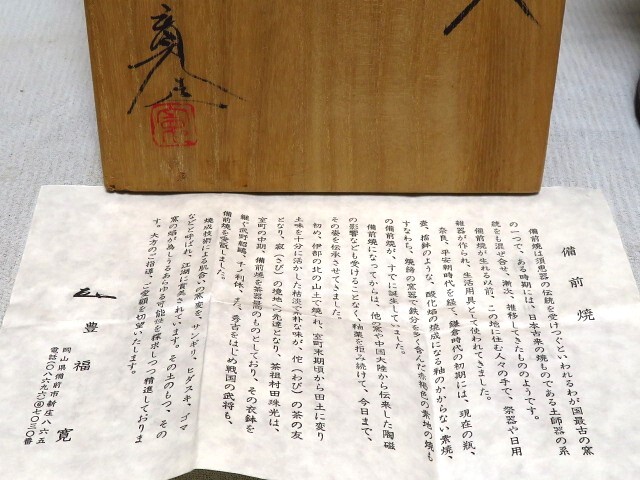 備前焼
備前焼は須恵器の伝統を受けつぐといわれるわが国最古の窯
の一つで、ある時期には、日本古来の焼ものである土師器の系
統をも混ぜ合せ、漸次、推移してきたもののようです。
備前焼が生れる以前、この地に住む人々の手で、祭器や日用
雑器が作られ、生活用具として使われてきました。
奈良、平安朝時代を経て、鎌倉時代の初期には、現在の瓶、
壺、擂鉢のような、酸化焔の焼成になる釉のかからない素焼、
すなわち、焼締の窯器で鉄分を多く含んだ赤褐色の素地の焼も
の備前焼が、すでに誕生していました。
備前焼になってからは、他の窯や中国大陸から伝来した陶磁
の影響なども受けることなく、釉薬を拒み続けて、今日まで、
その姿を伝承させてきました。
初め、伊部の北の山土で焼かれ、室町末期頃から田土に変り
土味を十分に活かした枯淡で素朴な味が、侘（わび）の茶の友
となり、寂（さび）の境地へ先達となり、茶祖村田珠光は、
室町の中期、備前焼を茶器最高のものとしており、その衣鉢を
継ぐ武野紹鷗、千ノ利休、また、秀吉をはじめ戦国の武将も、
備前焼を愛蔵しました。
焼成技術による肌合いの窯変を、サンギリ、ヒダスキ、ゴマ
などと呼ばれ、江湖に賞美されています。その土のもつ、その
窯の焔が為しうるあらゆる可能性を探求しつつ精進しておりま
す。大方のご指導、ご愛顧を切望いたします。
豊福寛
岡山県備前市新庄八六五
電話〇八六九六④七〇三〇番